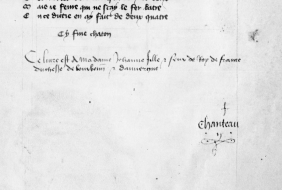 aie ie sent qui ne scay le fer
not on qy fait de deux quatre
Cy fine charon
Ce livre est A madame Jehanne fille & seur de Roy de france
duchesse de bourbonn & dauvergne
Chanteau